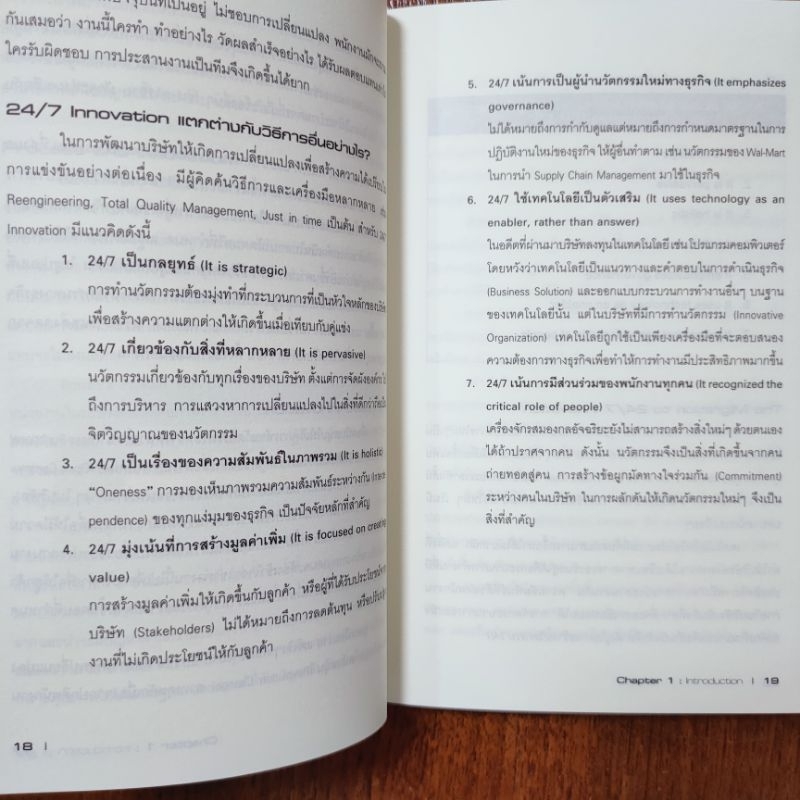 ไม่ชอบการเปลี่ยนแปลง
กันเสมอว่า งานนี้ใครทำ ทำอย่างไร วัดผลสำเร็จอย่างไร ได้รับผลตอบแทน
ใครรับผิดชอบ การประสานงานเป็นทีมจึงเกิดขึ้นได้ยาก
24/7 Innovation แตกต่างกับวิธีการอื่นอย่างไร?
ในการพัฒนาบริษัทให้เกิดการเปลี่ยนแปลงเพื่อสร้างความได้เปรียบ
การแข่งขันอย่างต่อเนื่อง มีผู้คิดค้นวิธีการและเครื่องมือหลากหลาย
Reengineering, Total Quality Management, Just in time เป็นต้น สำหรับ
Innovation มีแนวคิดดังนี้
1. 24/7 เป็นกลยุทธ์ (It is strategic)
การทำนวัตกรรมต้องมุ่งทำที่กระบวนการที่เป็นหัวใจหลักของ
เพื่อสร้างความแตกต่างให้เกิดขึ้นเมื่อเทียบกับคู่แข่ง
2. 24/7 เกี่ยวข้องกับสิ่งที่หลากหลาย (It is pervasive)
นวัตกรรมเกี่ยวข้องกับทุกเรื่องของบริษัท ตั้งแต่การจัดผังองค์กร
ถึงการบริหาร การแสวงหาการเปลี่ยนแปลงไปในสิ่งที่ดีกว่า
จิตวิญญาณของนวัตกรรม
3. 24/7 เป็นเรื่องของความสัมพันธ์ในภาพรวม (It is holistic)
“Oneness” การมองเห็นภาพรวมความสัมพันธ์ระหว่างกัน
pendence) ของทุกแง่มุมของธุรกิจ เป็นปัจจัยหลักที่สำคัญ
4. 24/7 มุ่งเน้นที่การสร้างมูลค่าเพิ่ม (It is focused on
value)
การสร้างมูลค่าเพิ่มให้เกิดขึ้นกับลูกค้า หรือผู้ที่ได้รับประโยชน์
บริษัท (Stakeholders) ไม่ได้หมายถึงการลดต้นทุน หรือ
งานที่ไม่เกิดประโยชน์ให้กับลูกค้า
18 |
5. 24/7 เน้นการเป็นผู้นำนวัตกรรมใหม่ทางธุรกิจ (It emphasizes
governance)
ไม่ได้หมายถึงการกำกับดูแลแต่หมายถึงการกำหนดมาตรฐานในการ
ปฏิบัติงานใหม่ของธุรกิจ ให้ผู้อื่นทำตาม เช่น นวัตกรรมของ Wal-Mart
ในการนำ Supply Chain Management มาใช้ในธุรกิจ
6. 24/7 ใช้เทคโนโลยีเป็นตัวเสริม (It uses technology as an
enabler, rather than answer)
ในอดีตที่ผ่านมาบริษัทลงทุนในเทคโนโลยี เช่น โปรแกรมคอมพิวเตอร์
โดยหวังว่าเทคโนโลยีเป็นแนวทางและคำตอบในการดำเนินธุรกิจ
(Business Solution) และออกแบบกระบวนการทำงานอื่นๆ บนฐาน
ของเทคโนโลยีนั้น แต่ในบริษัทที่มีการทำนวัตกรรม (Innovative
Organization) เทคโนโลยีถูกใช้เป็นเพียงเครื่องมือที่จะตอบสนอง
ความต้องการทางธุรกิจเพื่อทำให้การทำงานมีประสิทธิภาพมากขึ้น
7. 24/7 เน้นการมีส่วนร่วมของพนักงานทุกคน (It recognized the
critical role of people)
เครื่องจักรสมองกลอัจฉริยะยังไม่สามารถสร้างสิ่งใหม่ๆ ด้วยตนเอง
ได้ถ้าปราศจากคน ดังนั้น นวัตกรรมจึงเป็นสิ่งที่เกิดขึ้นจากคน
ถ่ายทอดสู่คน การสร้างข้อผูกมัดทางใจร่วมกัน (Commitment)
ระหว่างคนในบริษัท ในการผลักดันให้เกิดนวัตกรรมใหม่ๆ จึงเป็น
สิ่งที่สำคัญ
Chapter 1 : Introduction | 19